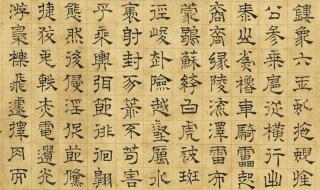 鏤象六玉虬拖蜺旌
公參乘扈從橫行出
泰山為櫓車騎雷起
裔裔緣陵流澤雲布
蒙鶡蘇絝白虎被斑
徑峻赴險越壑厲水
裹射封豕箭不苟害
乎乘輿弭節徘徊翱
態然後侵淫促節儵
捷狡兔軼赤電遺光
游梟櫟飛遽擇肉而